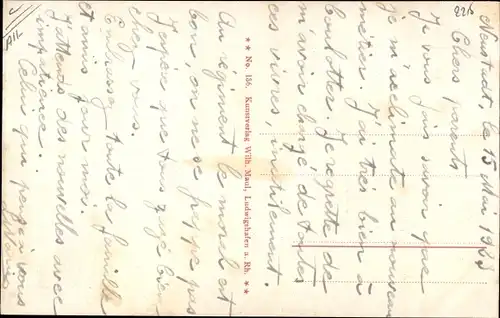 Neustadt, le 15 Mai 1923
Chers parents
Je vous fais savoir que
je m'acclimate au nouveau
métier. J'ai très bien à
boulotter. Je regrette de
m'avoir chargé de toutes
ces vivres inutilement.
Au régiment le mal est
bon, on ne se frappe pas
J'espère que tous va bien
chez-vous.
Embrasser toute la famille
et amis pour moi.
J'attends des nouvelles avec
impatience.
Celui qui pense à vous
** No. 156. Kunstverlag Wilh. Maul, Ludwigshafen a. Rh. **
226
All.